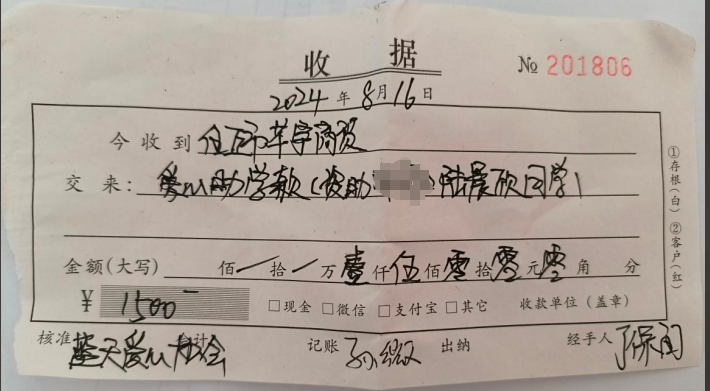 收据
№ 201806
2024年8月16日
今收到 商贸
交来: 爱心助学款(资助 陆晨硕同学)
金额(大写) 佰/拾/万壹仟伍佰零拾零元零角 分
¥ 1500—
□现金 □微信 □支付宝 □其它 收款单位(盖章)
核准 蓝天爱心社会 记账 孙 出纳 经手人
①存根(白) ②客户(红)